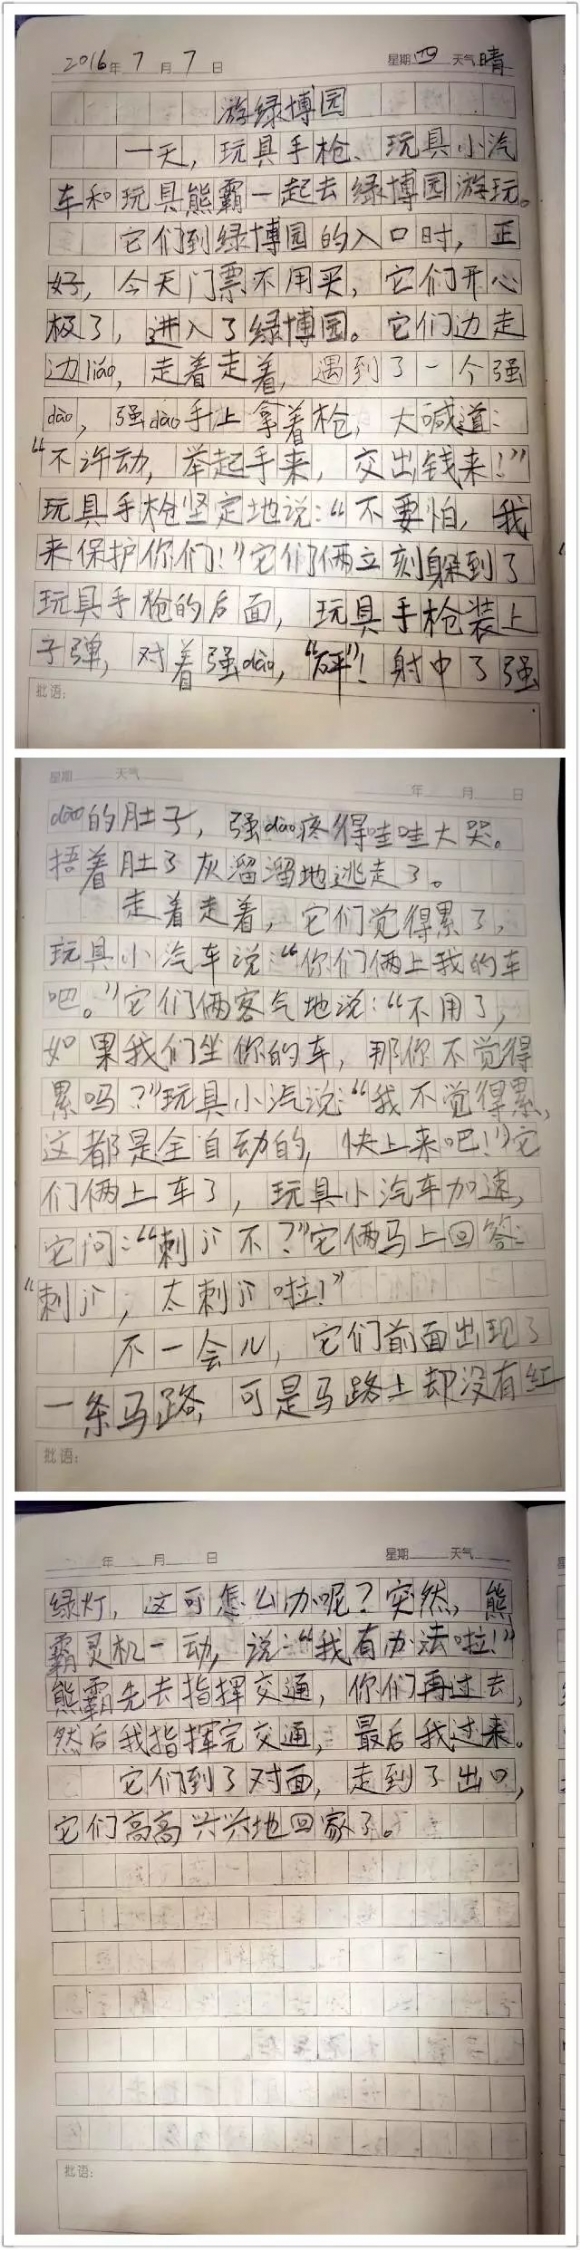 2016年 7 月 7 日 星期 四 天气 晴
游绿博园
一天，玩具手枪、玩具小汽
车和玩具熊霸一起去绿博园游玩。
它们到绿博园的入口时，正
好，今天门票不用买，它们开心
极了，进入了绿博园。它们边走
边liáo，走着走着，遇到了一个强
dào，强dào手上拿着枪，大喊道：
“不许动，举起手来，交出钱来！”
玩具手枪坚定地说：“不要怕，我
来保护你们！”它们俩立刻躲到了
玩具手枪的后面，玩具手枪装上
子弹，对着强dào，“砰”！射中了强
批语：
星期 天气 年 月 日
dào的肚子，强dào疼得哇哇大哭。
捂着肚子灰溜溜地逃走了。
走着走着，它们觉得累了，
玩具小汽车说：“你们俩上我的车
吧。”它们俩客气地说：“不用了，
如果我们坐你的车，那你不觉得
累吗？”玩具小汽说：“我不觉得累，
这都是全自动的，快上来吧！”它
们俩上车了，玩具小汽车加速，
它问：“刺 不？”它俩马上回答：
“刺 ，太刺 啦！”
不一会儿，它们前面出现了
一条马路，可是马路上却没有红
批语：
年 月 日 星期 天气
绿灯，这可怎么办呢？突然，熊
霸灵机一动，说：“我有办法啦！”
熊霸先去指挥交通，你们再过去，
然后我指挥完交通，最后我过来。
它们到了对面，走到了出口，
它们高高兴兴地回家了。
批语：